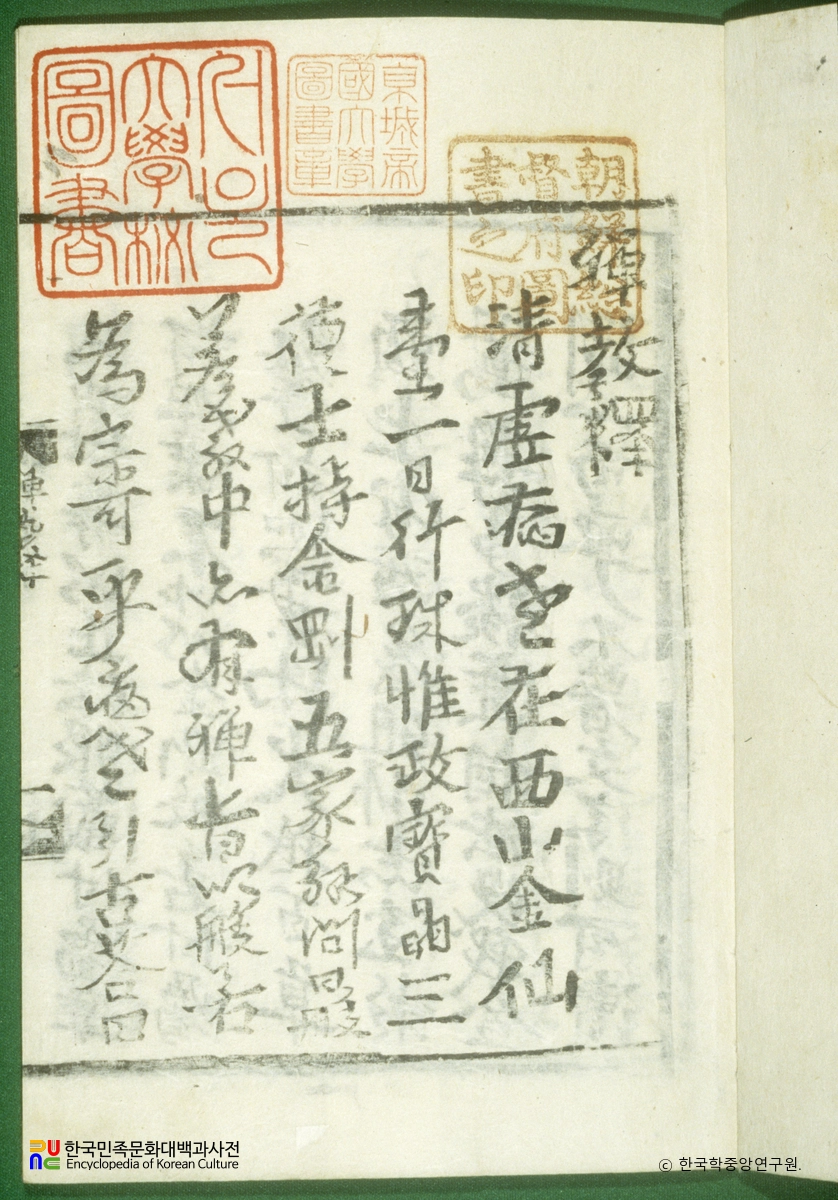 서울
大學校
圖書
京城帝
國大學
圖書章
朝鮮總
督府圖
書之印
禪教釋
清虛病老在西山金仙
臺一日行珠惟政寶晶三
德士持金剛五家解問曰般
若教中亦有禪旨以般若
為宗可乎病老引古答曰
한국민족문화대백과사전
Encyclopedia of Korean Culture
ⓒ 한국학중앙연구원.